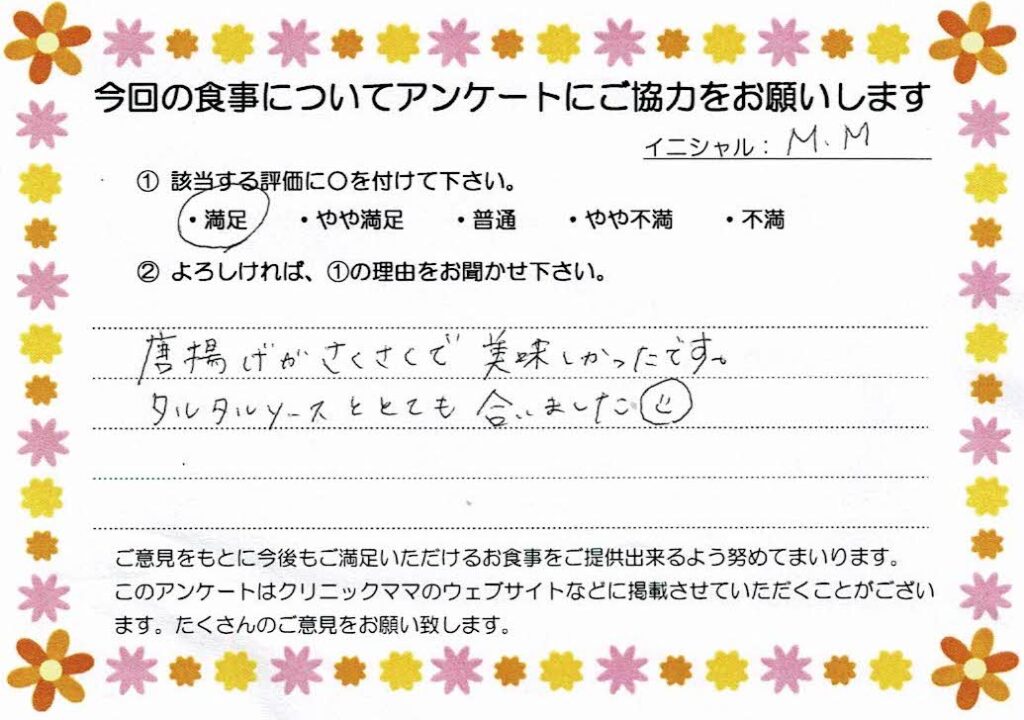 今回の食事についてアンケートにご協力をお願いします
イニシャル：M.M
① 該当する評価に〇を付けて下さい。
・満足 ・やや満足 ・普通 ・やや不満 ・不満
② よろしければ、①の理由をお聞かせ下さい。
唐揚げがさくさくで美味しかったです。
タルタルソースととても合いました☺
ご意見をもとに今後もご満足いただけるお食事をご提供出来るよう努めてまいります。
このアンケートはクリニックママのウェブサイトなどに掲載させていただくことがござい
ます。たくさんのご意見をお願い致します。